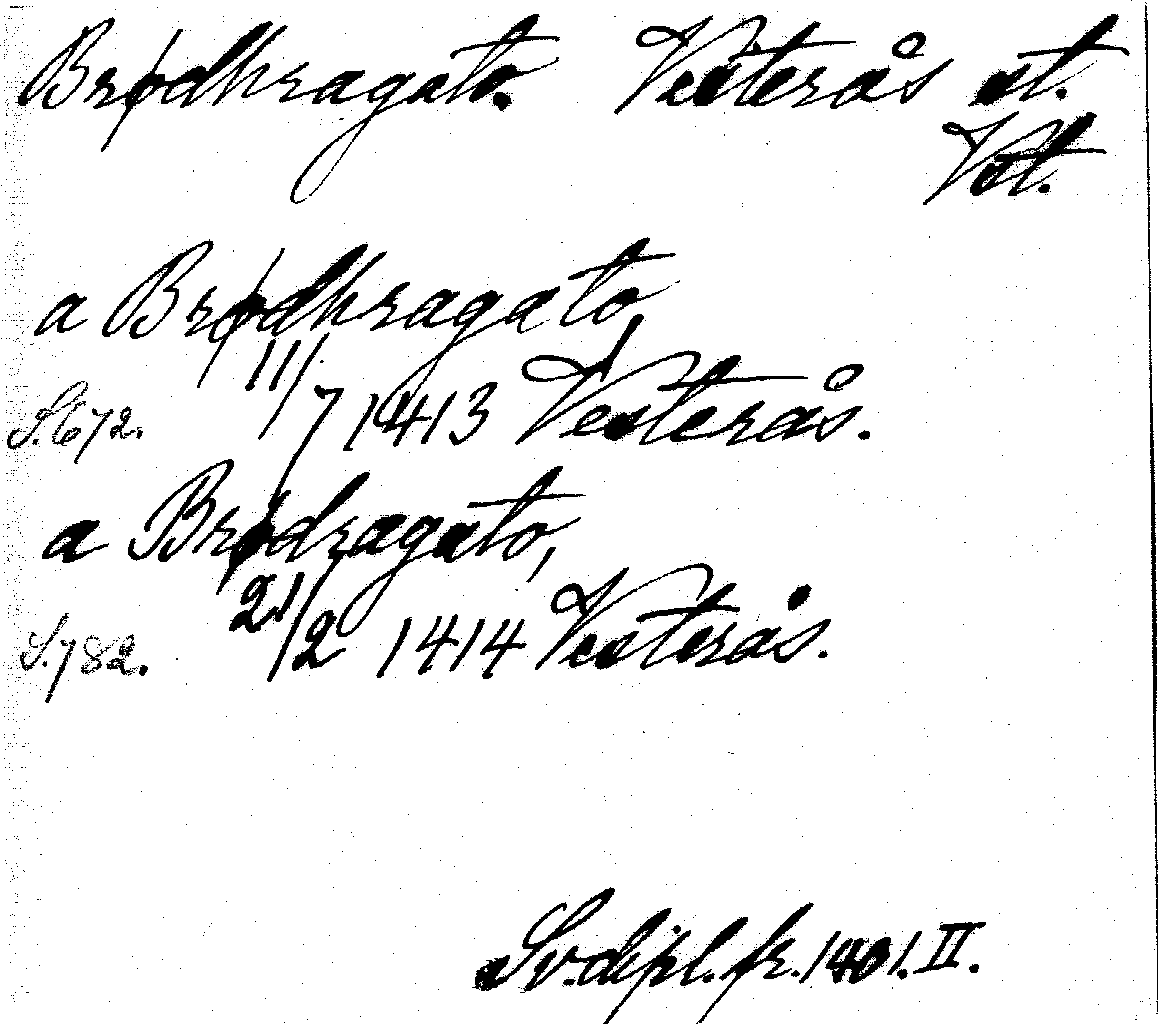 Brødhragato. Vesterås st.
Vst.
a Brødhragato,
S. 672. 11/7 1413 Vesterås.
a Brødragato,
S. 782. 21/2 1414 Vesterås.
Sv. dipl. fr. 1401. II.